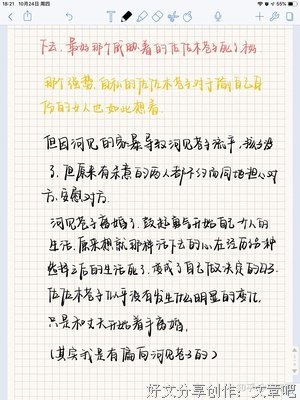 18:21 10月24日 周四
55%
下去,最好那个威胁着的佐佐木苍子死了
那个强势、自私的佐佐木苍子对于偷自己身
份的女人也如此想着。
但因河见的家暴导致河见苍子流产,孩子没
了,但原来有杀意的两人都不约而同地担心对
方,安慰对方。
河见苍子离婚了,鼓起勇气开始自己一个人的
生活,原来想就那样活下去的心,在经历各种
些样之后的生活死了,变成了自己做决定的
佐佐木苍子似乎没有发生什么明显的变化,
只是和丈夫开始着手离婚。
(其实我是有偏向河见苍子的)
好文分享创作:文章吧